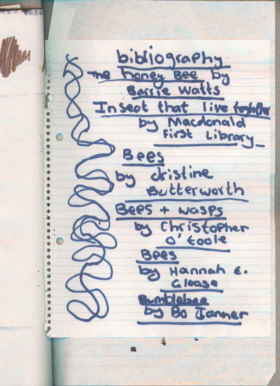 bibliography
The honey Bee by
Barrie Watts
Insect that live together
by Macdonald
First Library
Bees
by Cristine
Butterworth
Bees + wasps
by Christopher
O'Toole
Bees
by Hannah E.
Glease
Bumblebee
by Bo Janner